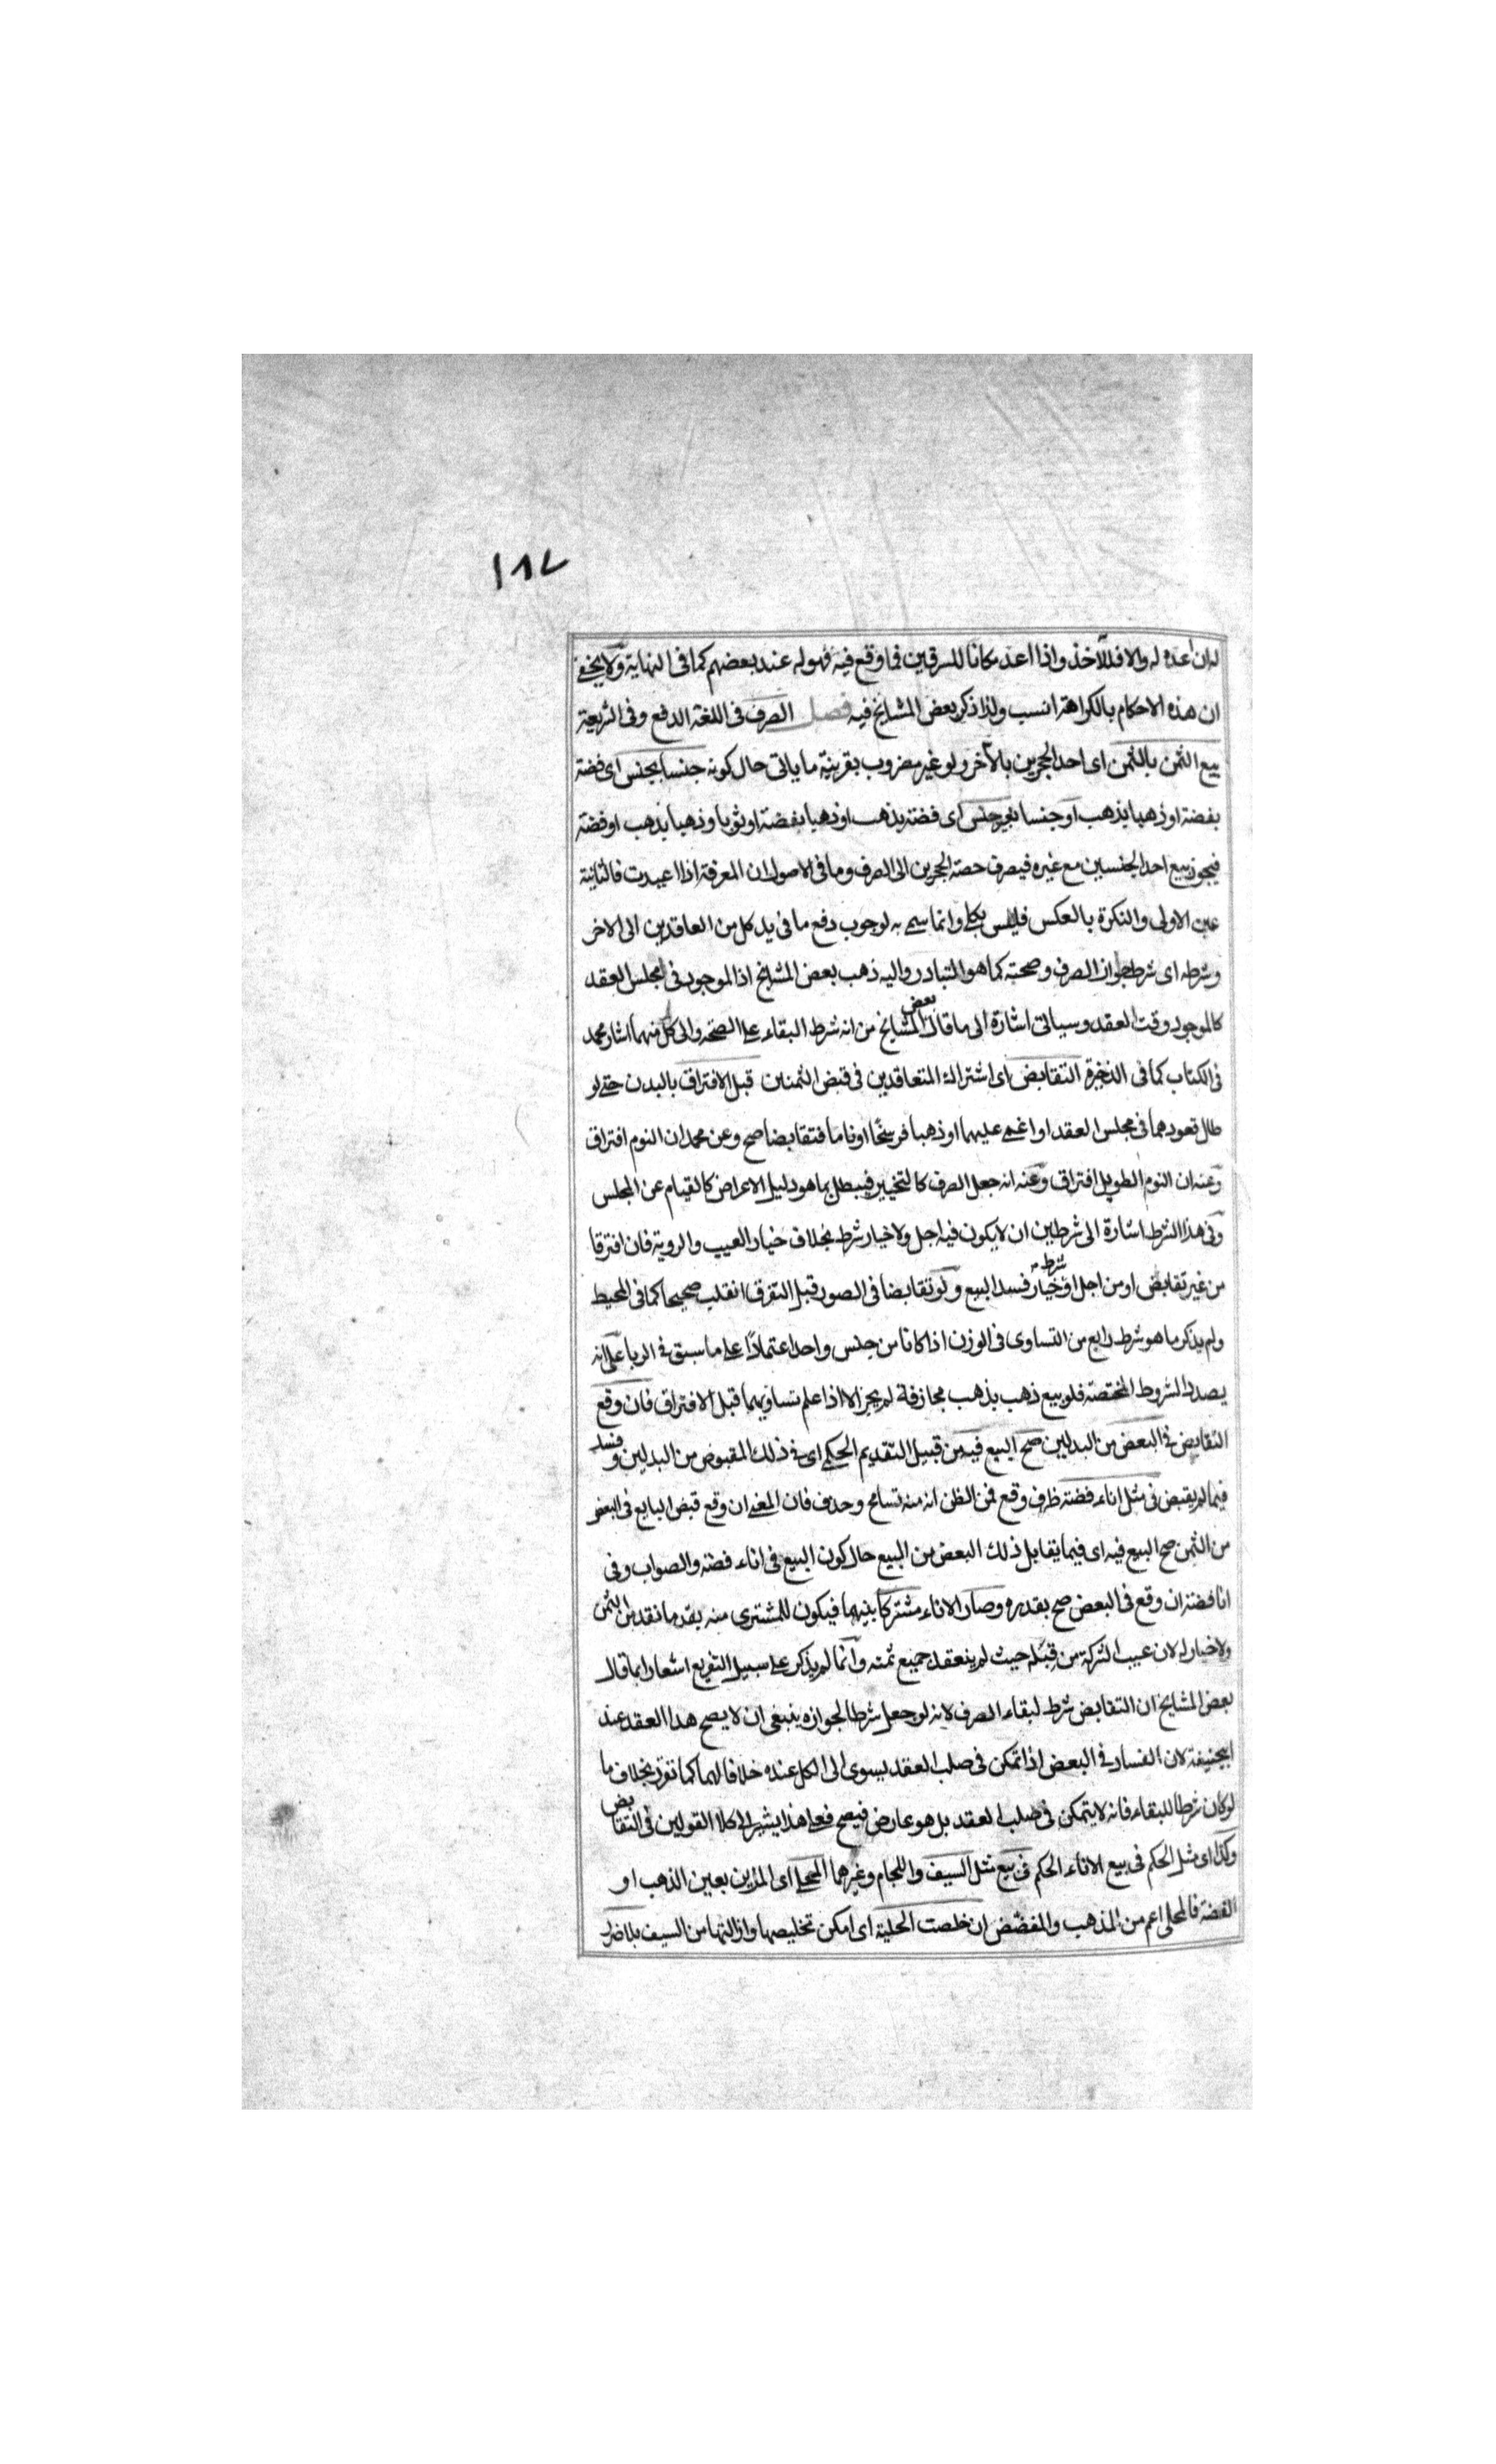 ١٨٧
له ان اعده له والا فللآخذ واذا اعد مكانا للسرقين فما وقع فيه فهو له عند بعضهم كما فى النهاية ولا يخفى
ان هذه الاحكام بالكراهة انسب ولذا ذكر بعض المشايخ فيه فصل الصرف فى اللغة الدفع وفى الشريعة
بيع الثمن بالثمن اى احد الحجرين بالآخر ولو غير مضروب بقرينة ما ياتى حال كونه جنسا بجنس اى فضة
بفضة او ذهبا بذهب او جنسا بغير جنس اى فضة بذهب او ذهبا بفضة او ثوبا وذهبا بذهب او فضة
فيجوز بيع احد الجنسين مع غيره فيصرف حصة الحجرين الى الصرف وما فى الاصول ان المعرفة اذا اعيدت فالثانية
عين الاولى والنكرة بالعكس فليس بكلى وانما سمى به لوجوب دفع ما فى يد كل من العاقدين الى الاخر
وشرطه اى شرط جواز الصرف وصحته كما هو المتبادر واليه ذهب بعض المشايخ اذ الموجود فى مجلس العقد
كالموجود وقت العقد وسياتى اشارة الى ما قال بعض المشايخ من انه شرط البقاء على الصحة والى كل منهما اشار محمد
فى الكتاب كما فى الذخيرة التقابض اى اشتراك المتعاقدين فى قبض الثمنين قبل الافتراق بالبدن حتى لو
طال قعودهما فى مجلس العقد او اغمى عليهما او ذهبا فرسخا او ناما فتقابضا صح وعن محمد ان النوم افتراق
وعنه ان النوم الطويل افتراق وعنه انه جعل الصرف كالتخيير فيبطل بما هو دليل الاعراض كالقيام عن المجلس
وفى هذا الشرط اشارة الى شرطين ان لا يكون فيه اجل ولا خيار شرط بخلاف خيار العيب والروية فان افترقا
من غير تقابض او من اجل او خيار شرط فسد البيع ولو تقابضا فى الصور قبل التفرق انقلب صحيحا كما فى المحيط
ولم يذكر ما هو شرط رابع من التساوى فى الوزن اذا كانا من جنس واحد اعتمادًا على ما سبق فى الربا على انه
يصدد الشروط المختصة فلو بيع ذهب بذهب مجازفة لم يجز الا اذا علم تساويهما قبل الافتراق فان وقع
التقابض فى البعض من البدلين صح البيع فيه من قبيل التقديم الحكمى اى فى ذلك المقبوض من البدلين وفسد
فيما لم يقبض فى مثل اناء فضة ظرف وقع فمن الظن انه منه تسامح وحذف فان المعنى ان وقع قبض البايع فى البعض
من الثمن صح البيع فيه اى فيما يقابل ذلك البعض من المبيع حال كون البيع فى اناء فضة والصواب وفى
انا فضة ان وقع فى البعض صح بقدره وصار الاناء مشتركا بينهما فيكون للمشترى منه بقدر ما نقد من الثمن
ولا خيار له لان عيب الشركة من قِبَله حيث لم ينعقد جميع ثمنه وانما لم يذكر على سبيل التفريع اشعارا بما قال
بعض المشايخ ان التقابض شرط لبقاء الصرف لانه لو جعل شرطا لجوازه ينبغى ان لا يصح هذا العقد عند
ابيحنيفة لان الفساد فى البعض اذا تمكن فى صلب العقد يسوى الى الكل عنده خلافا لهما كما تقرر بخلاف ما
لو كان شرطا للبقاء فانه لا يتمكن فى صلب العقد بل هو عارض فيصح فعلى هذا يشير الى كلا القولين فى التقابض
وكذا اى مثل الحكم فى بيع الاناء الحكم فى بيع مثل السيف واللجام وغيرهما المحلى اى المزين بعين الذهب او
الفضة فالمحلى اعم من المذهب والمفضض ان خلصت الحلية اى امكن تخليصها وازالتها من السيف بلا ضرر